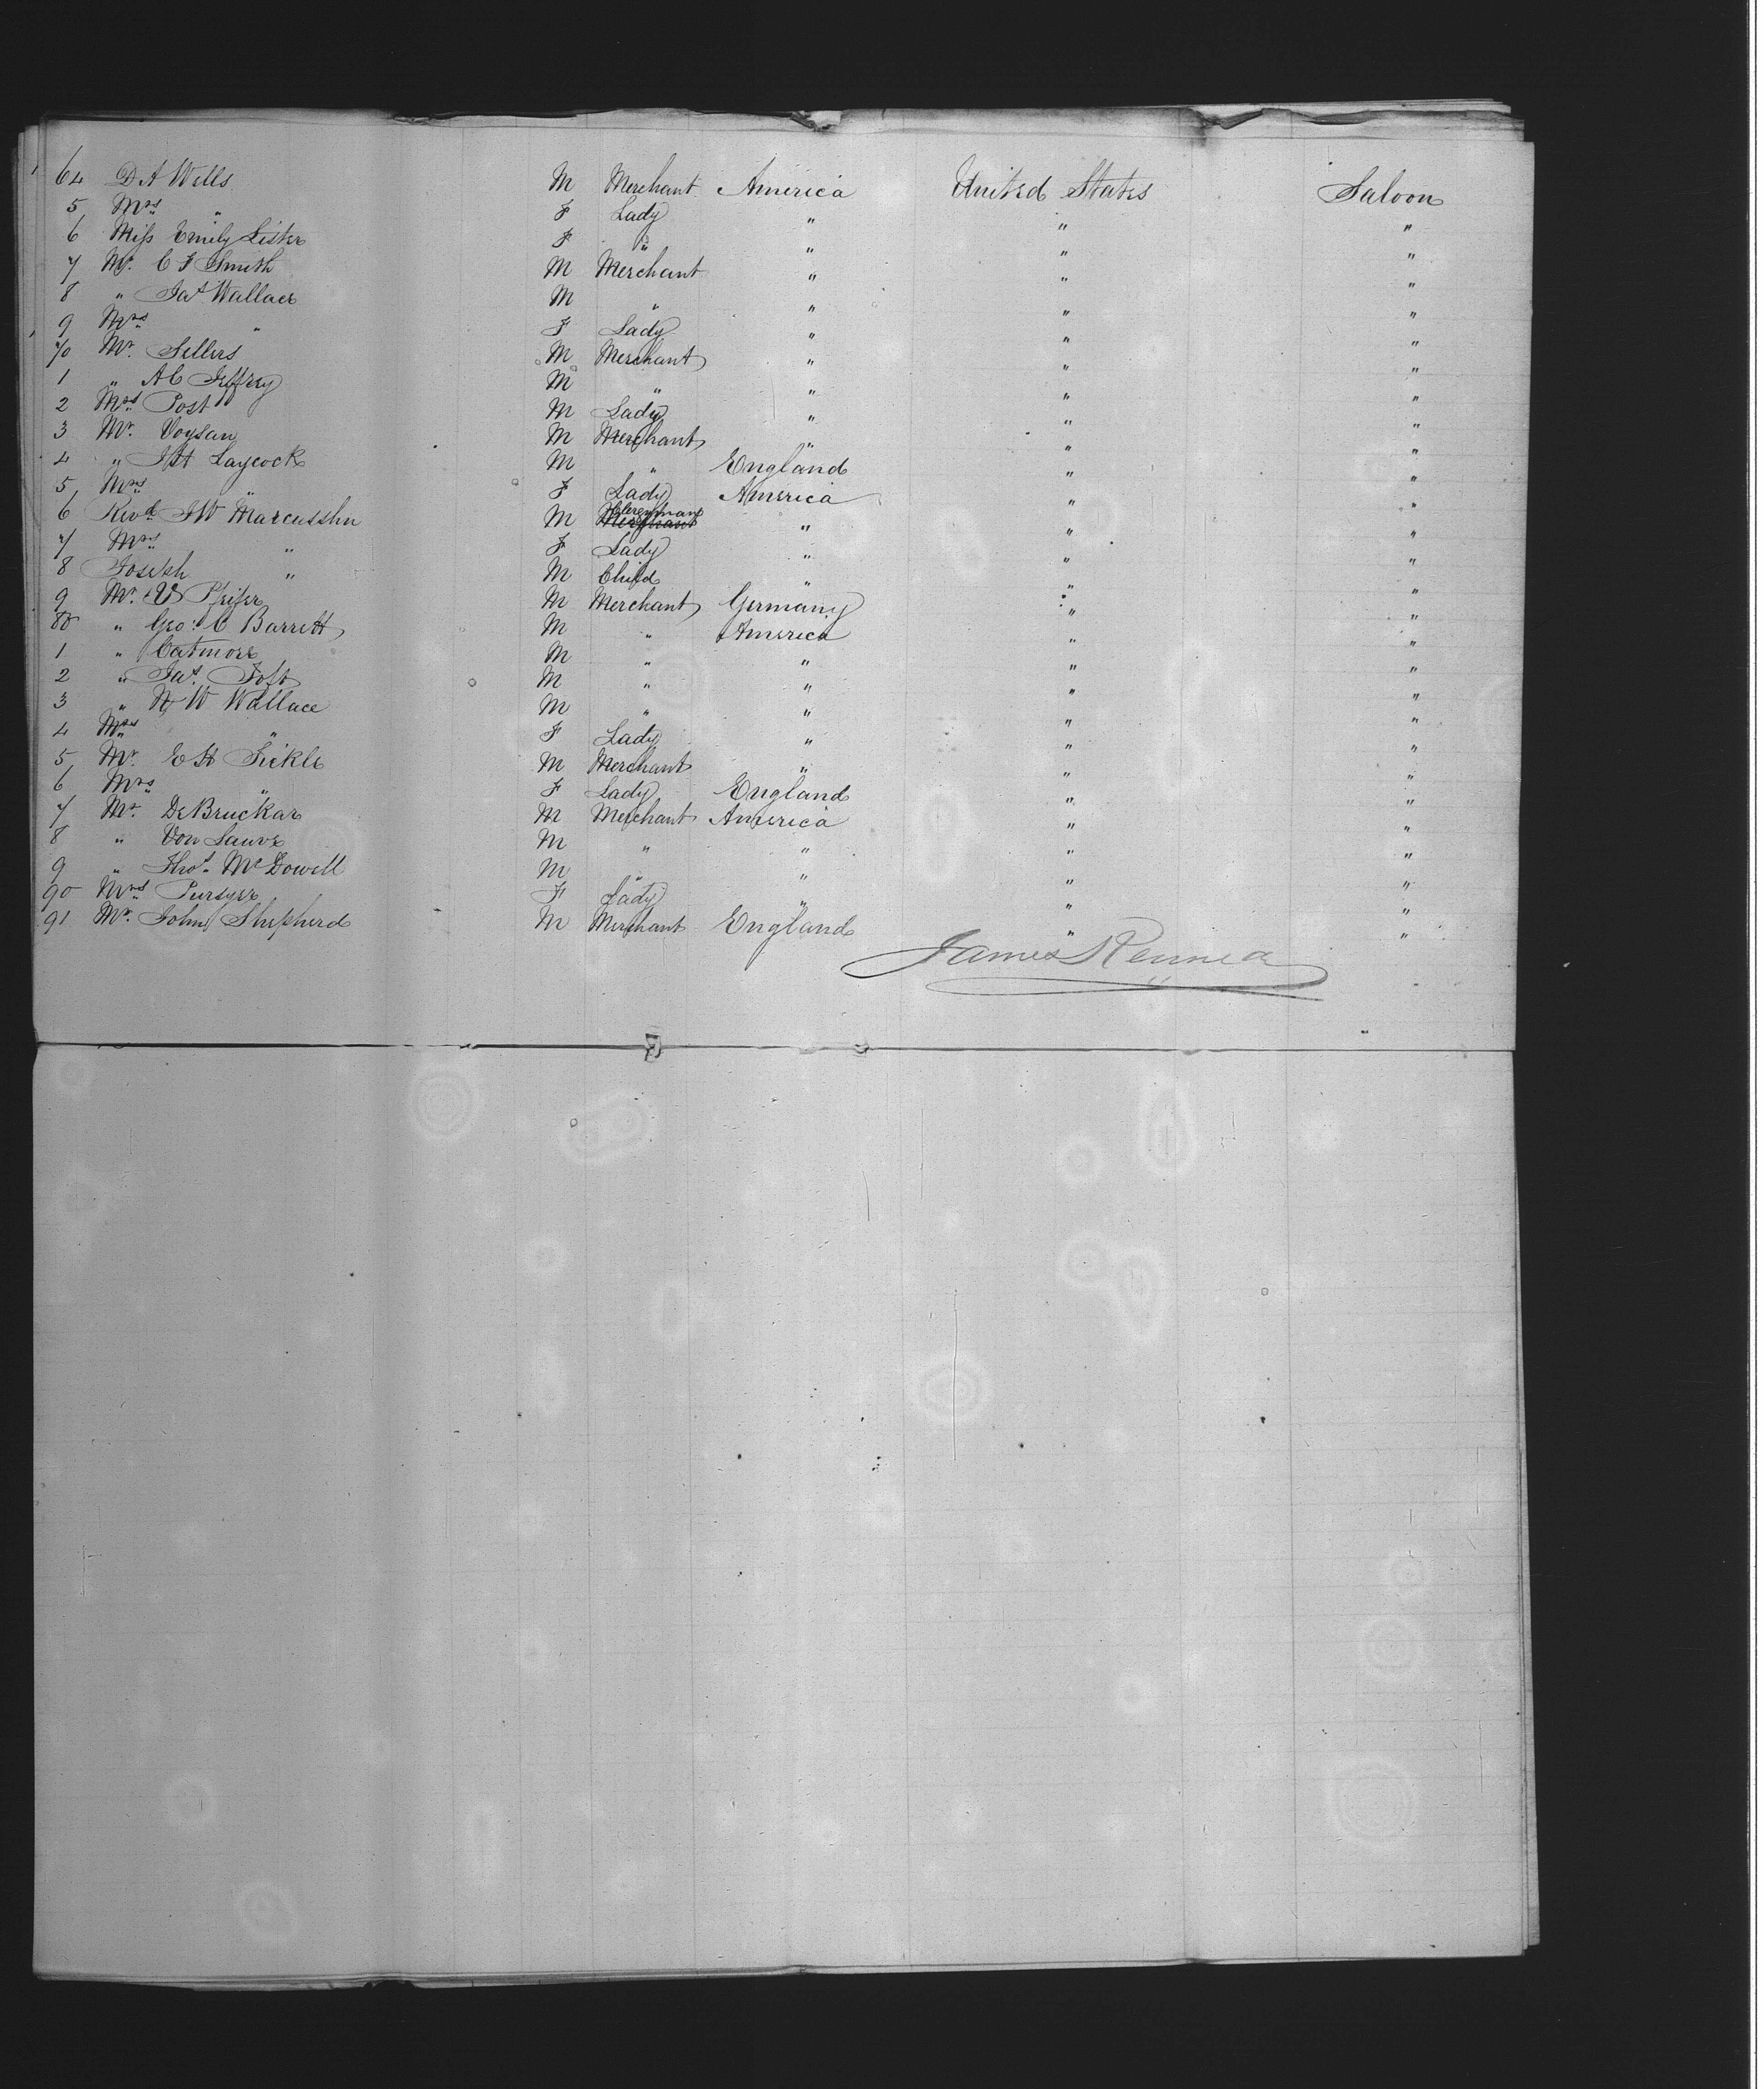 64 D A Wells M Merchant America United States Saloon
5 Mrs " F Lady " " "
6 Miss Emily Lister F " " " "
7 Mr. C F Smith M Merchant " " "
8 " Jas Wallace M " " " "
9 Mrs " F Lady " " "
70 Mr. Sellers M Merchant " " "
1 " A C Jeffrey M " " " "
2 Mrs Post M Lady " " "
3 Mr. Voysan M Merchant " " "
4 " Laycock M " England " "
5 Mrs " F Lady America " "
6 Revd J W Marcusshn M Clergyman " " "
7 Mrs " F Lady " " "
8 Joseph " M Child " " "
9 Mr. V Pfeifer M Merchant Germany " "
80 " Geo. C Barrett M " America " "
1 " Catmore M " " " "
2 " Jas. M " " " "
3 " W Wallace M " " " "
4 Mrs " F Lady " " "
5 Mr. E H Sickle M Merchant " " "
6 Mrs " F Lady England " "
7 Mr. DeBruckar M Merchant America " "
8 " Von Sauve M " " " "
9 " Thos. McDowell M " " " "
90 Mrs Pursyer F Lady " " "
91 Mr. John Shepherd M Merchant England " "
James Rennea